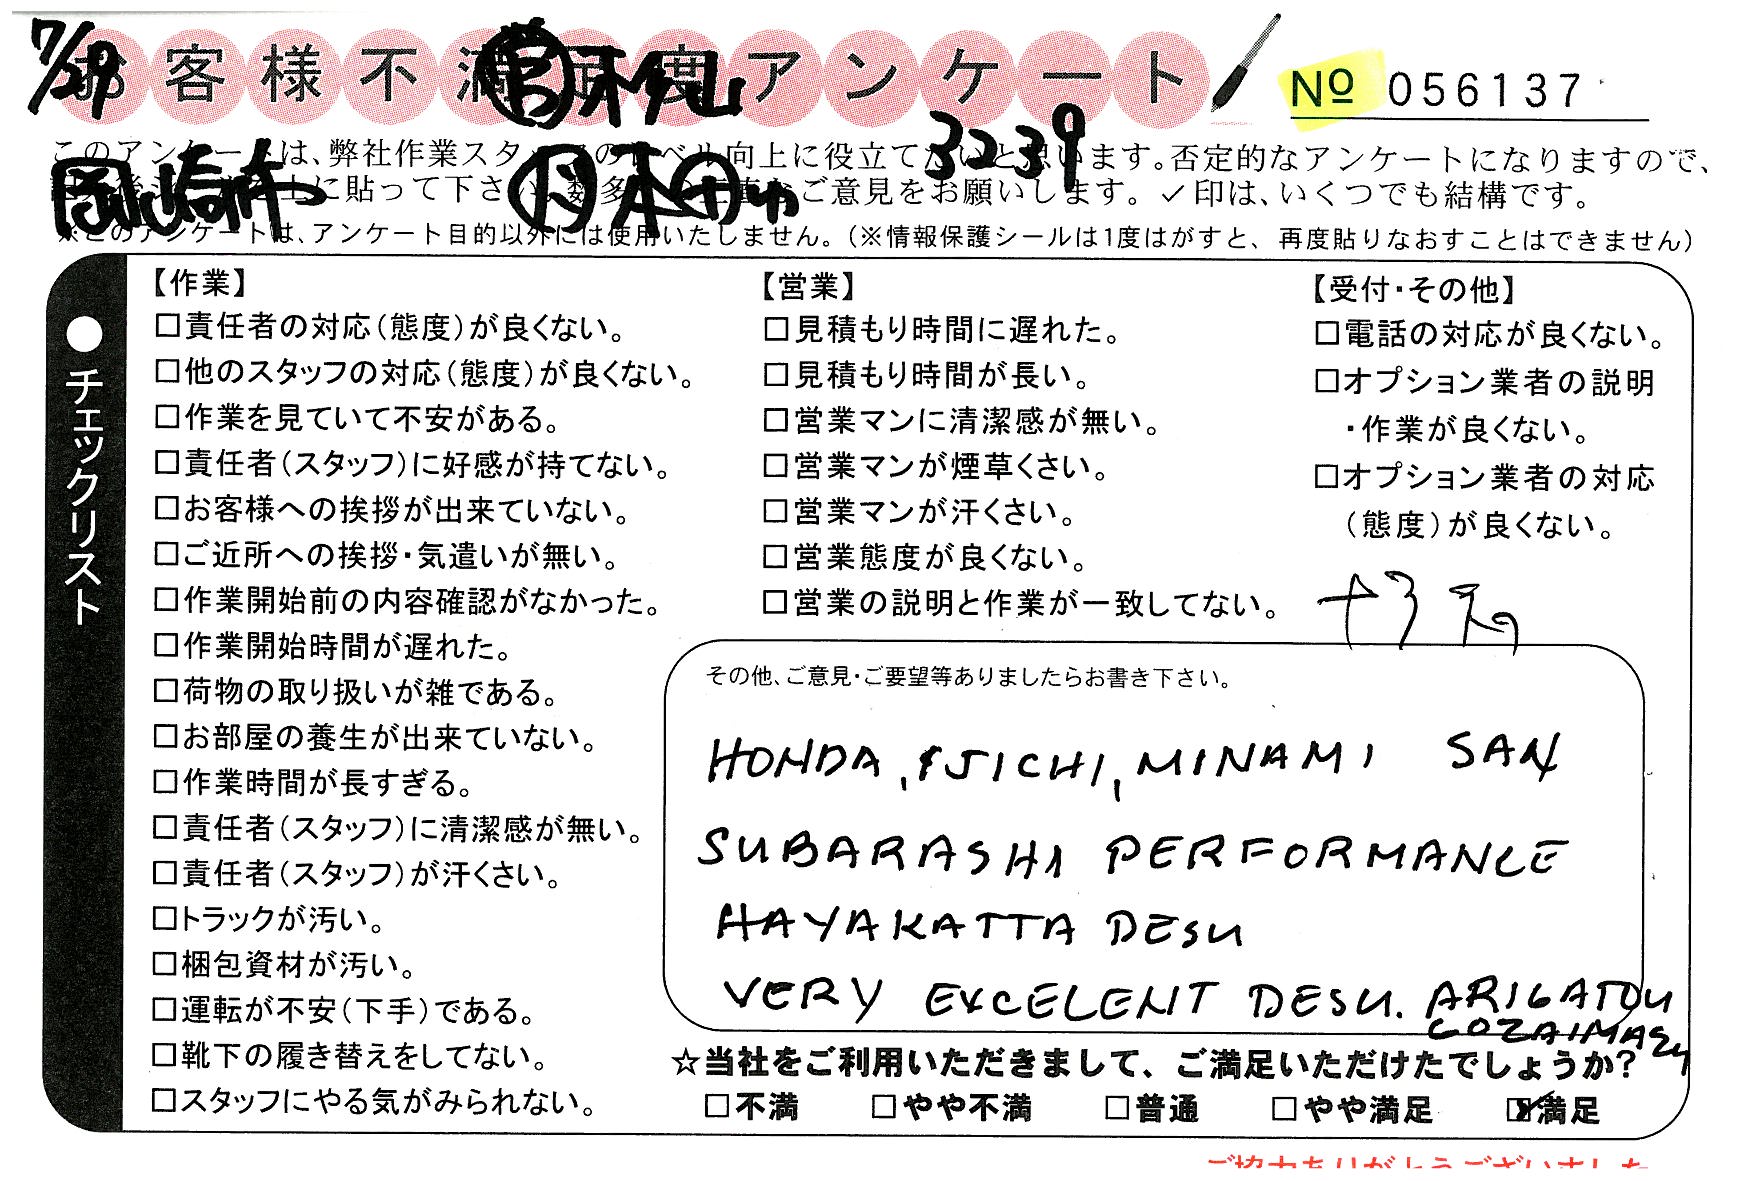 7/29
お客様不満足度アンケート
No 056137
3239
このアンケートは、弊社作業スタッフのレベル向上に役立てたいと思います。否定的なアンケートになりますので、
に貼って下さい。数多 ご意見をお願いします。✓印は、いくつでも結構です。
※このアンケートは、アンケート目的以外には使用いたしません。(※情報保護シールは1度はがすと、再度貼りなおすことはできません)
●チェックリスト
【作業】
□責任者の対応(態度)が良くない。
□他のスタッフの対応(態度)が良くない。
□作業を見ていて不安がある。
□責任者(スタッフ)に好感が持てない。
□お客様への挨拶が出来ていない。
□ご近所への挨拶・気遣いが無い。
□作業開始前の内容確認がなかった。
□作業開始時間が遅れた。
□荷物の取り扱いが雑である。
□お部屋の養生が出来ていない。
□作業時間が長すぎる。
□責任者(スタッフ)に清潔感が無い。
□責任者(スタッフ)が汗くさい。
□トラックが汚い。
□梱包資材が汚い。
□運転が不安(下手)である。
□靴下の履き替えをしてない。
□スタッフにやる気がみられない。
【営業】
□見積もり時間に遅れた。
□見積もり時間が長い。
□営業マンに清潔感が無い。
□営業マンが煙草くさい。
□営業マンが汗くさい。
□営業態度が良くない。
□営業の説明と作業が一致してない。
【受付・その他】
□電話の対応が良くない。
□オプション業者の説明
・作業が良くない。
□オプション業者の対応
(態度)が良くない。
その他、ご意見・ご要望等ありましたらお書き下さい。
HONDA, IJICHI, MINAMI SAN
SUBARASHI PERFORMANCE
HAYAKATTA DESU
VERY EXCELENT DESU. ARIGATOU
GOZAIMASU
☆当社をご利用いただきまして、ご満足いただけたでしょうか?
□不満 □やや不満 □普通 □やや満足 ☑満足
ご協力ありがとうございました